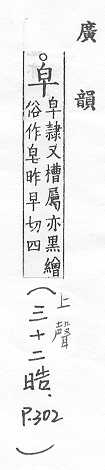 廣韻
皁
皁隸又槽屬亦黑繒
俗作皂昨早切四
(上聲
三十二晧.
P.302)